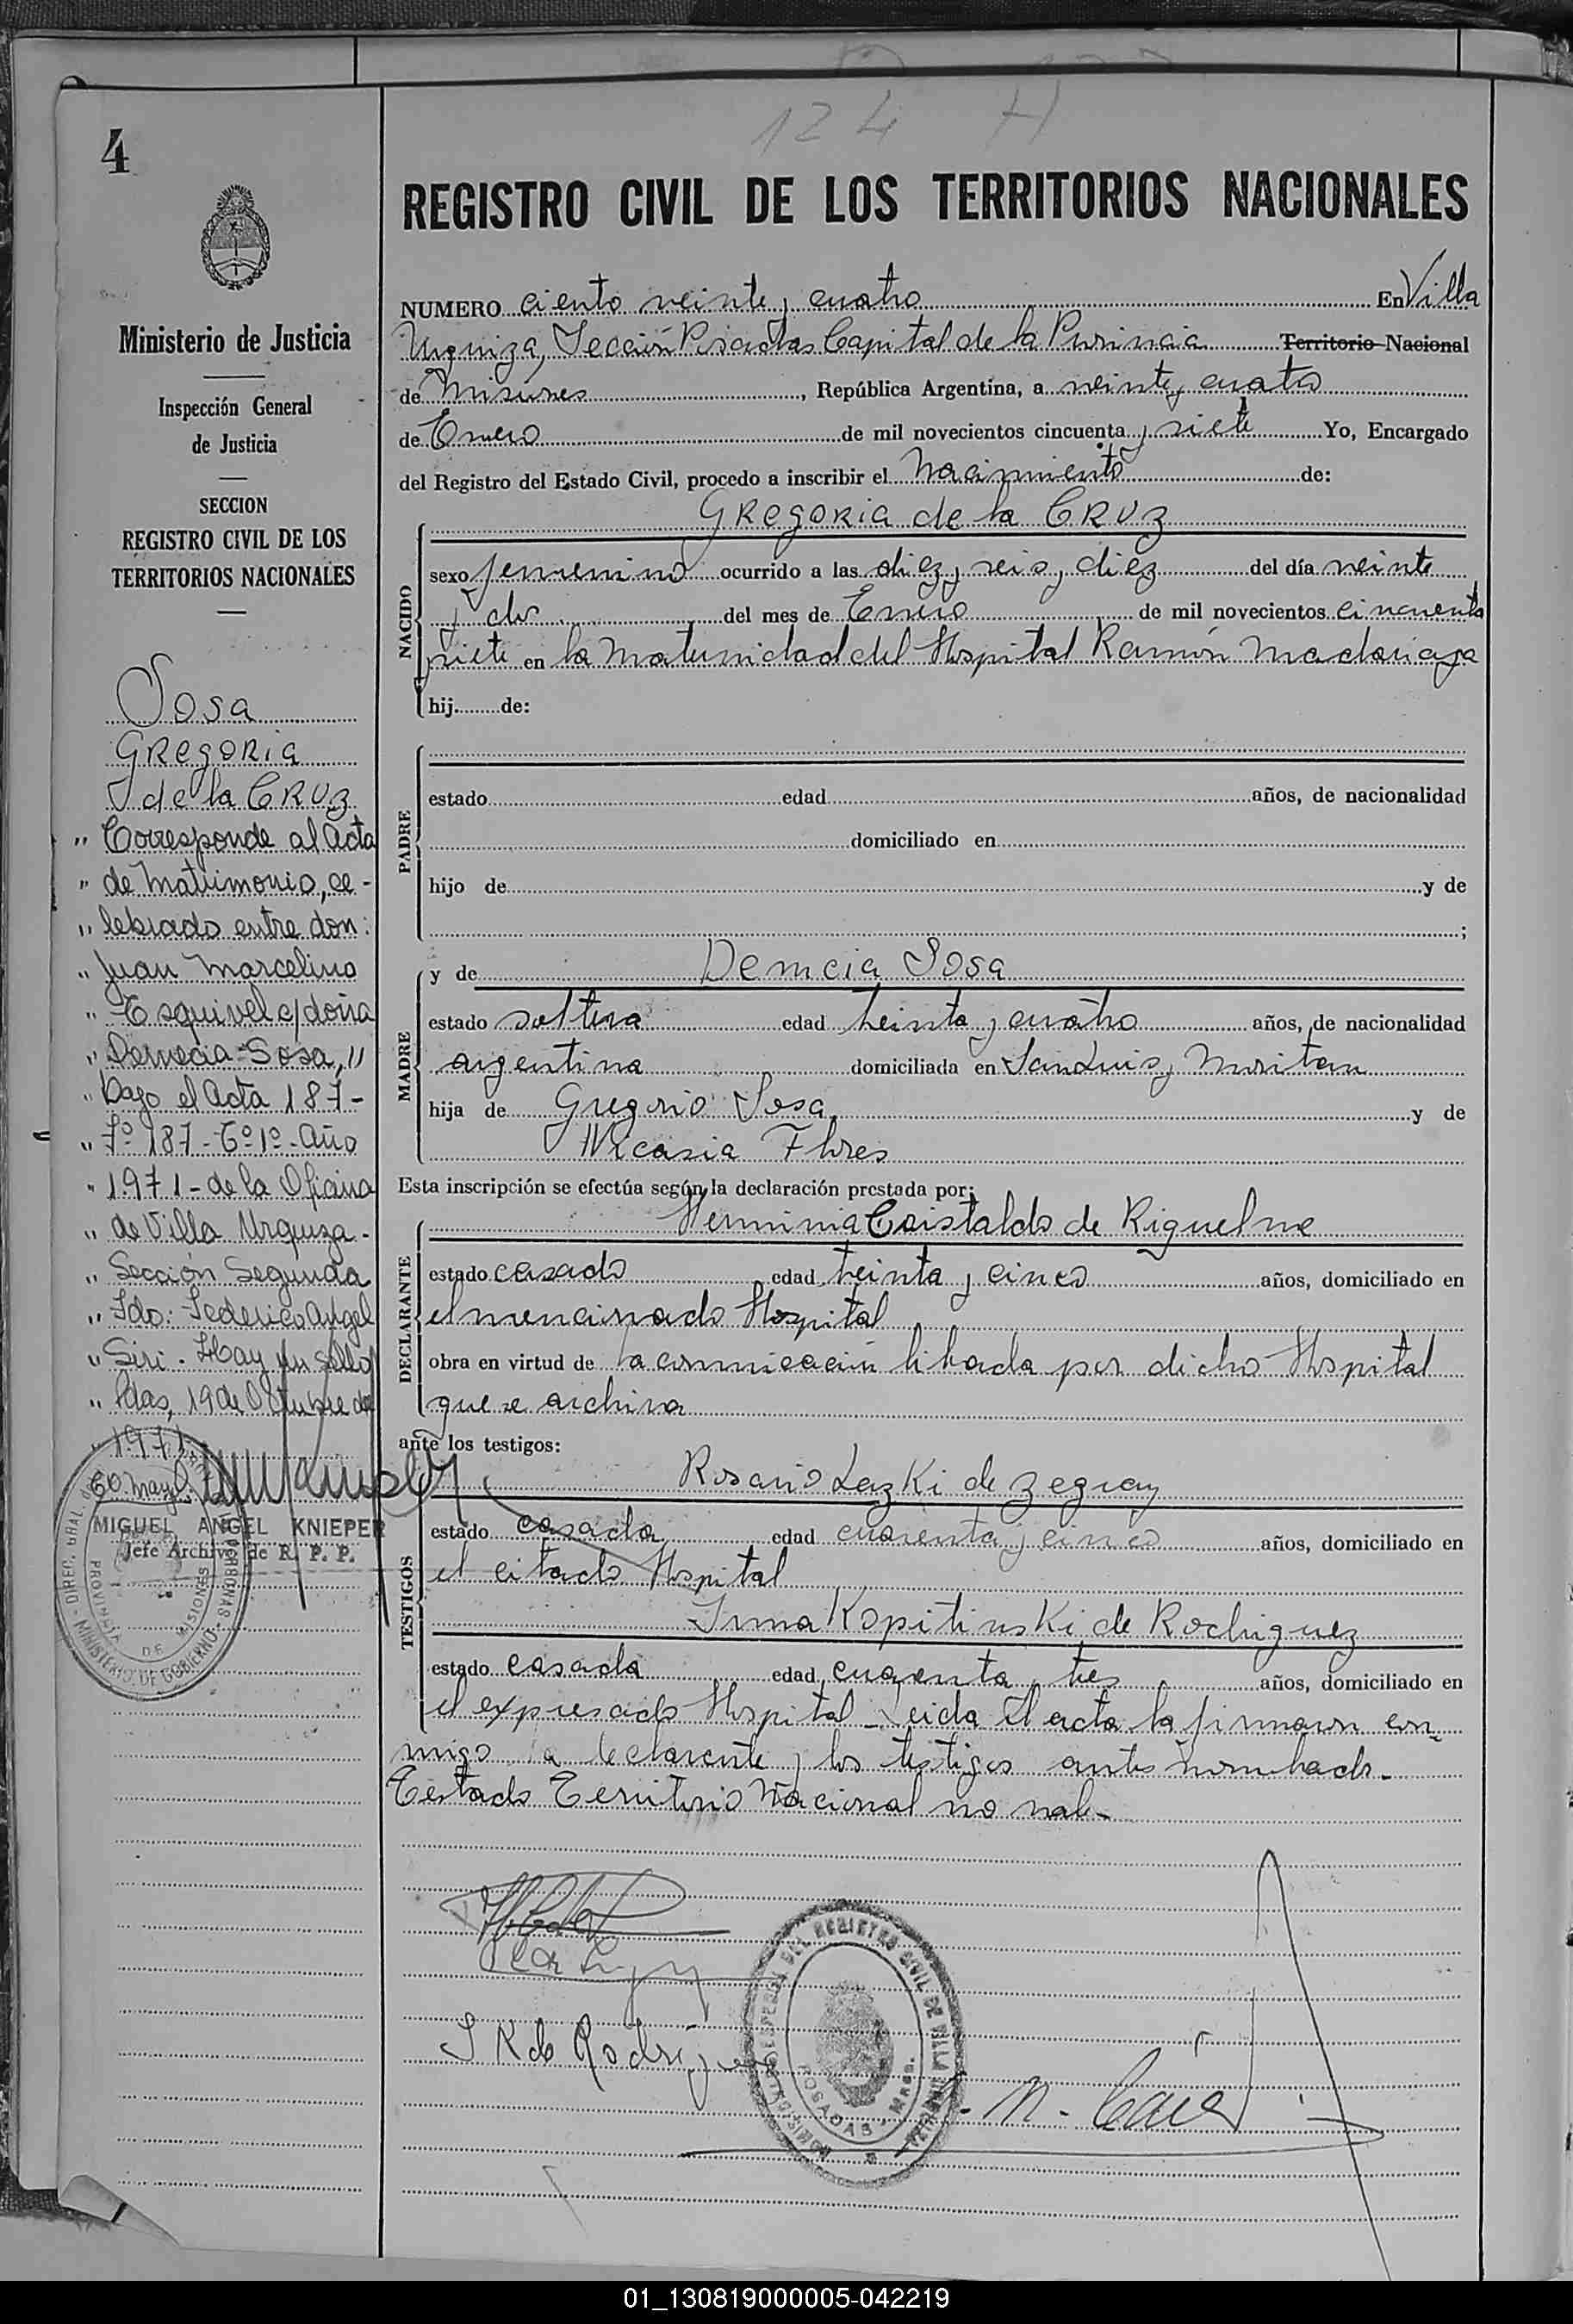 124 H
4
REGISTRO CIVIL DE LOS TERRITORIOS NACIONALES
Ministerio de Justicia
Inspección General
de Justicia
SECCION
REGISTRO CIVIL DE LOS
TERRITORIOS NACIONALES
Sosa
Gregoria
de la Cruz
" Corresponde al Acta
" de Matrimonio, ce-
" lebrado entre don:
" Juan Marcelino
" Esquivel c/doña
" Demecia Sosa, "
" Bajo el Acta 187-
" Fº 187-Tº 1º-Año
" 1971-de la Oficina
" de Villa Urquiza-
" Sección Segunda
" Fdo: Federico Angel
" Siri. Hay un sello
" Pdas, 19 de Octubre de
" 1971.
MIGUEL ANGEL KNIEPER
Jefe Archivo de R. P. P.
DIREC. GRAL. PERSONAS - MINISTERIO DE GOBIERNO
PROVINCIA DE MISIONES
NUMERO ciento veinte y cuatro En Villa
Urquiza, Sección Posadas Capital de la Provincia Territorio Nacional
de Misiones, República Argentina, a veinte y cuatro
de Enero de mil novecientos cincuenta y siete Yo, Encargado
del Registro del Estado Civil, procedo a inscribir el Nacimiento de:
NACIDO
Gregoria de la Cruz
sexo femenino ocurrido a las diez y seis y diez del día veinte
y dos del mes de Enero de mil novecientos cincuenta
siete en la Maternidad del Hospital Ramón Madariaga
hij de:
PADRE
estado edad años, de nacionalidad
domiciliado en
hijo de y de
;
MADRE
y de Demecia Sosa
estado soltera edad treinta y cuatro años, de nacionalidad
argentina domiciliada en San Luis y
hija de Gregorio Sosa y de
Nicasia Flores
Esta inscripción se efectúa según la declaración prestada por:
DECLARANTE
Herminia Caistaldo de Riquelme
estado casado edad treinta y cinco años, domiciliado en
el mencionado Hospital
obra en virtud de la comunicación librada por dicho Hospital
que se archiva
ante los testigos:
TESTIGOS
Rosario Lezki de
estado casada edad cuarenta y cinco años, domiciliado en
el citado Hospital
Irma Kopitinski de Rodriguez
estado casada edad cuarenta y tres años, domiciliado en
el expresado Hospital - Leida el acta la firmaron con-
migo la declarante y los testigos antes nombrado -
Testado Territorio Nacional no vale -
I K de Rodriguez
REGISTRO CIVIL DE VILLA URQUIZA
POSADAS Mnes.
01_130819000005-042219